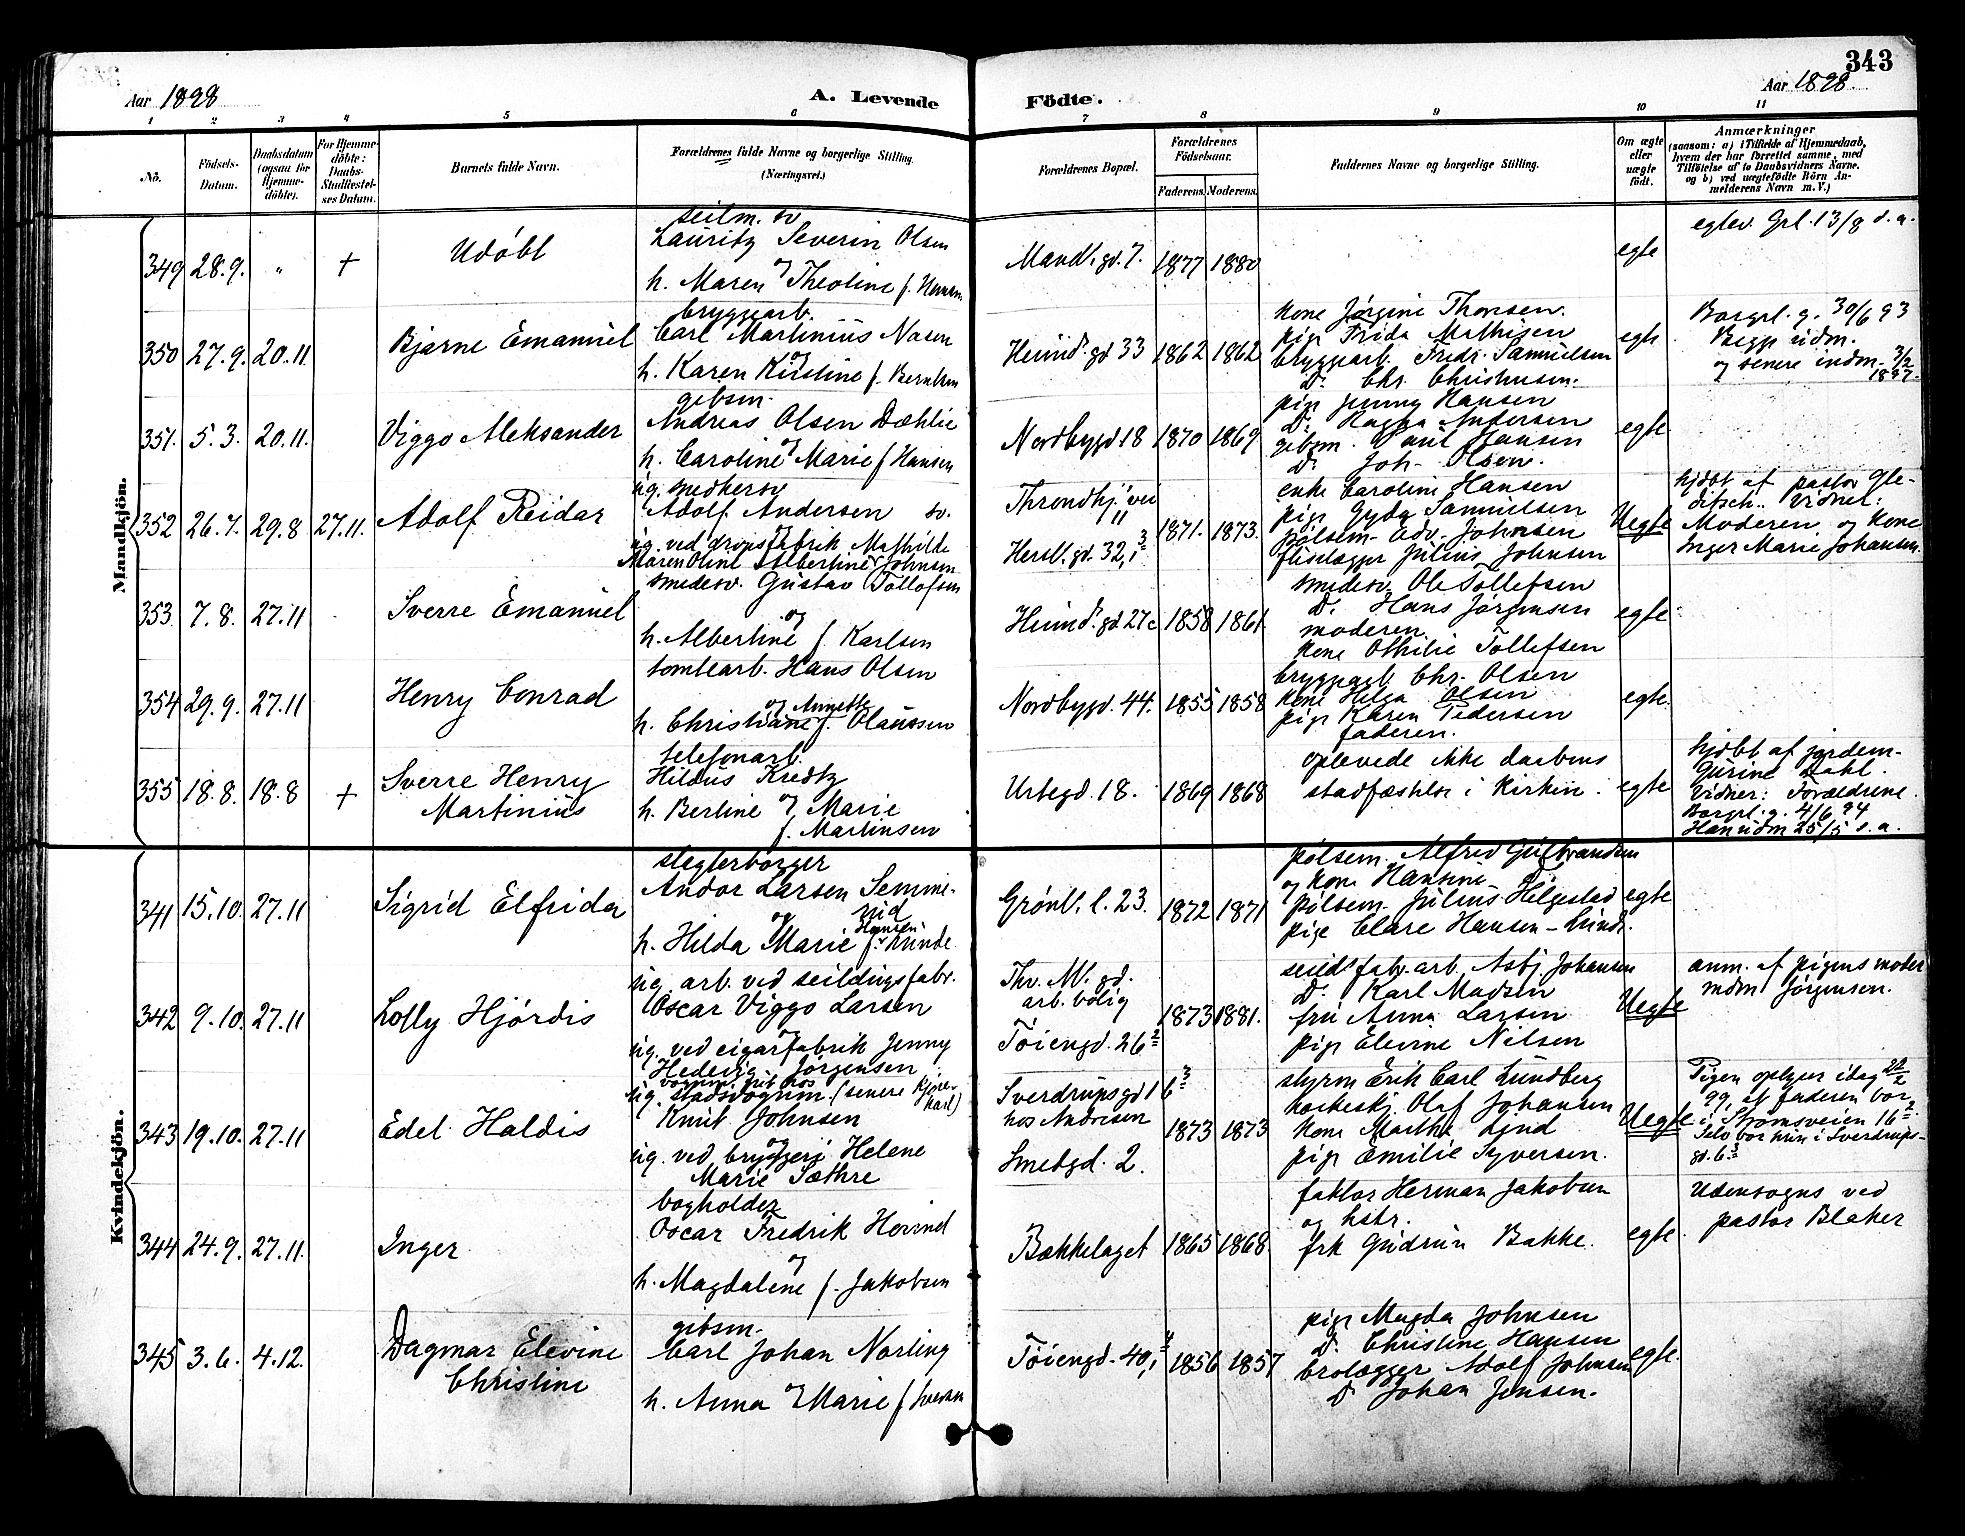 343
Aar 1898
A. Levende Födte.
Aar 1898
1 2 3 4 5 6 7 8 9 10 11
No.
Födsels-Datum.
Daabsdatum (ogsaa for Hjemme-döbte).
For Hjemme-döbte: Daabs-Stadfæstel-ses Datum.
Barnets fulde Navn.
Forældrenes fulde Navne og borgerlige Stilling.
(Næringsvei.)
Forældrenes Bopæl.
Forældrenes Födselsaar.
Faderens. Moderens.
Faddernes Navne og borgerlige Stilling.
Om ægte eller uægte födt.
Anmærkninger
(saasom: a) i Tilfælde af Hjemmedaab,
hvem der har forrettet samme, med
Tilföielse af to Daabsvidners Navne.
og b) ved uægtefödte Börn An-
melderens Navn m.V.)
Mandkjön.
349 28.9. " + Udöbt
seilm. sv
Lauritz Severin Olsen
og
h. Maren Theoline f.
Mandl. gd. 7. 1877 1880
egte
egtev. Grl. 13/8 s. a.
350 27.9. 20.11 Bjarne Emanuel
bryggearb.
Carl Martinius Nasen
og
h. Karen Kirstine f. Berntsen
Heimd. gd 33 1862 1862
kone Jørgine Thoresen.
pige Frida Mathisen
bryggearb. Fredr. Samuelsen
D. Chr. Christensen.
egte
Borgrl. g. 30/6 93
Begge udm.
og senere indm. 3/2
1897.
351. 5.3. 20.11. Viggo Aleksander
gibsm.
Andreas Olsen Dæhlie
og
h. Caroline Marie f Hansen
Nordbygd 18 1870 1869
pige Jenny Hansen
D. Ragna Andersen
gibsm. Paul Hansen
D. Joh. Olsen.
egte
352 26.7. 29.8 27.11. Adolf Reidar
ug. smedkersv
Adolf Andersen sv.
og
ug. ved dropsfabrik Mathilde
Maren Oline Albertine Johnsen
Throndhj. vei
11
Hersl. gd. 32, 3
1871. 1873.
enke Caroline Hansen
pige Gyda Samuelsen
pølsem. Edv. Johnsen
fliselægger Julius Johnsen
Uegte
hjdbt af pastor Gle-
ditsch. Vidner:
Moderen og kone
Inger Marie Johansen.
353 7.8. 27.11 Sverre Emanuel
smedesv. Gustav Tollofsen
og
h. Albertine f. Karlsen
Heimd. gd 27c 1858 1861
smedesv Ole Tollefsen
D. Hans Jørgensen
moderen.
kone Othilie Tollefsen
egte
354 29.9. 27.11 Henry Conrad
tomtearb. Hans Olsen
og Annette
h. Christiane f. Olaussen
Nordbygd. 44. 1855 1858
bryggearb Chr. Olsen
kone Helga Olsen
pige Karen Pedersen
faderen.
egte.
355 18.8. 18.8 + Sverre Henry
Martinius
telefonarb.
Hildus Kredtz
og
h. Berline Marie
f. Martinsen
Urtegd. 18. 1869 1868
oplevede ikke daabens
stadfæstelse i kirken.
egte
hjdbt af jordem.
Gurine Dahl.
Vidner: Forældrene.
Borgrl. g. 4/6 94
Han udm 25/5 s. a.
Kvindekjön.
341 15.10. 27.11 Sigrid Elfrida
slagterborger
Andor Larsen Semme-
og nid
h. Hilda Marie f. Hansen Lunde
Grønl. l. 23. 1872 1871
pølsem. Alfred Gulbrandsen
og kone Hansine
pølsem. Julius Helgestad
pige Clare Hansen-Lunde.
egte
342 9.10. 27.11 Lolly Hjördis
ug. arb. ved seildugsfabr.
Oscar Viggo Larsen
og
ug. ved cigarfabrik Jenny
Hedevig Jørgensen
Thv. M. gd.
arb. bolig
Tøiengd. 26 2
1873 1881.
seilds fabr. arb. Asbj. Johansen
D. Karl Madsen
fru Anna Larsen
pige Elevine Nilsen
Uegte
anm. af pigens moder
mdm Jørgensen.
343 19.10. 27.11 Edel Haldis
ug. stadsvognm. (senere kjøre-
karl)
Knut Johnsen
og
ug. ved bryggeri Helene
Marie Sæthre
Sverdrupsgd 16 3
hos Andresen
Smedgd. 2.
1873 1873
styrm Erik Carl Lundberg
Olaf Johansen
kone Martha Lund
pige Emilie Syversen.
Uegte
Pigen oplyser idag 22/2
99, at faderen bor
i Strømsveien 16 2
Selv bor hun i Sverdrups-
gd. 6 3
344 24.9. 27.11 Inger
bogholder
Oscar Fredrik Hovind
og
h. Magdalene f. Jakobsen
Bækkelaget 1865 1868.
faktor Herman Jakobsen
og hstr.
frk Gudrun Bakke.
egte.
Udensogns ved
pastor Blaker
345 3.6. 4.12. Dagmar Elevine
Christine
gibsm.
Carl Johan Norling
og
h. Anna Marie f. Iversen
Tøiengd. 40, 4 1856 1857
pige Magda Johnsen
D. Christine Hansen
brolægger Adolf Johnsen
D. Johan Jensen.
egte.